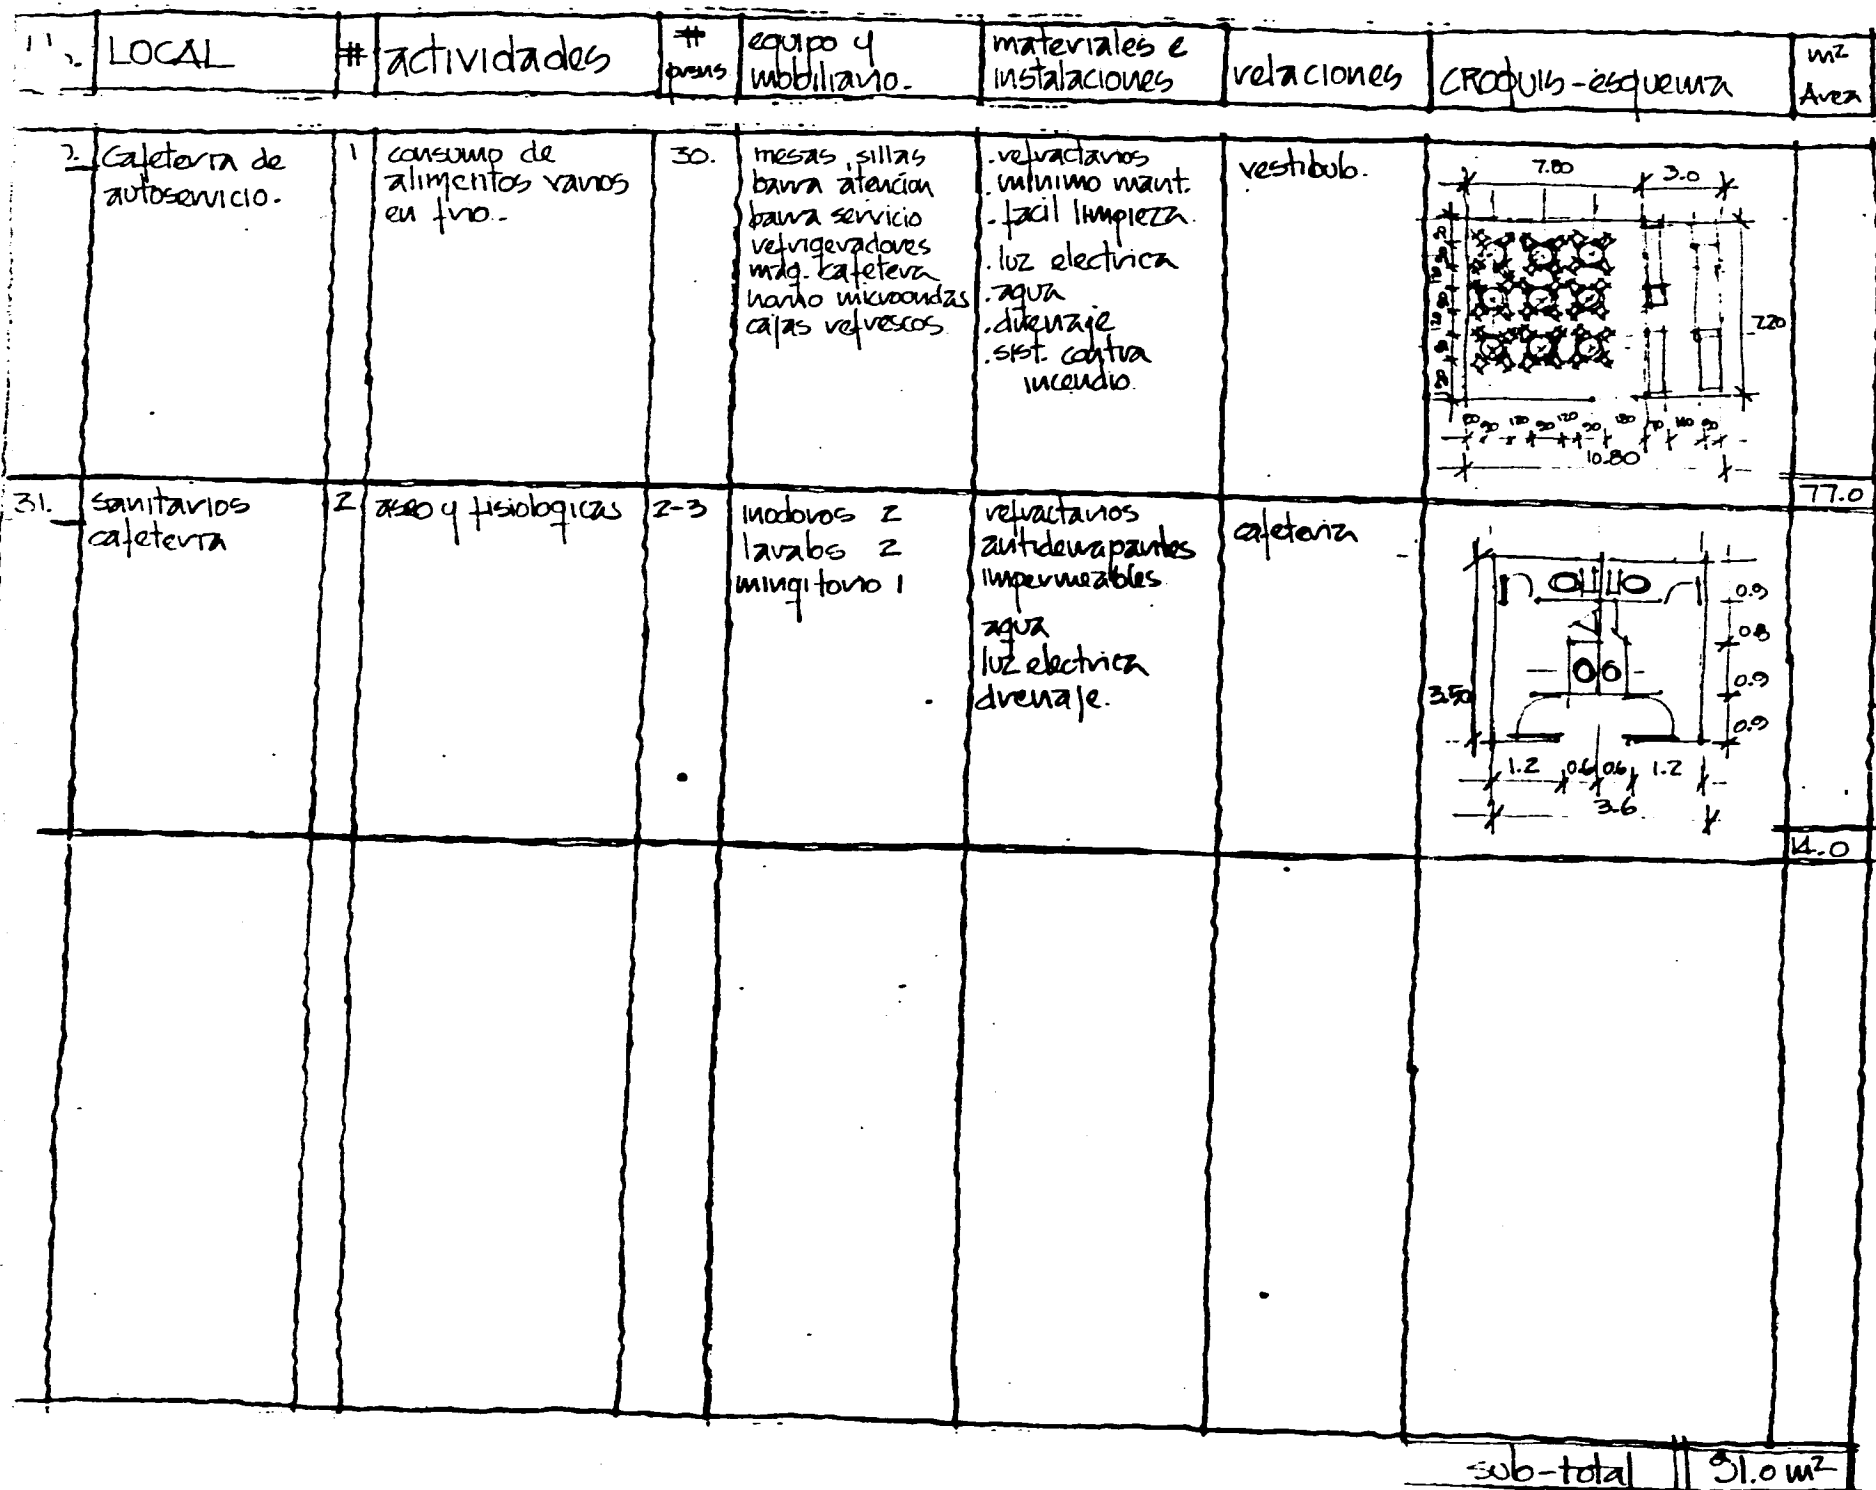 LOCAL
#
actividades
#
prsns
equipo y
mobiliario.
materiales e
instalaciones
relaciones
CROQUIS-esquema
m²
Area
2.
Cafeteria de
autoservicio.
1
consumo de
alimentos varios
en frio.
30.
mesas, sillas
barra atencion
barra servicio
refrigeradores
maq. cafetera
horno microondas
cajas refrescos
.refractarios
.minimo mant.
.facil limpieza.
.luz electrica
.agua
.drenaje
.sist. contra
incendio.
vestibulo.
7.80
3.0
7.20
10.80
77.0
31.
sanitarios
cafeteria
2
aseo y fisiologicas
2-3
inodoros 2
lavabs 2
mingitorio 1
refractarios
antiderrapantes
impermeables
agua
luz electrica
drenaje.
cafeteria
3.50
0.9
0.8
0.9
0.9
1.2 0.6 0.6 1.2
3.6
14.0
sub-total
91.0 m²